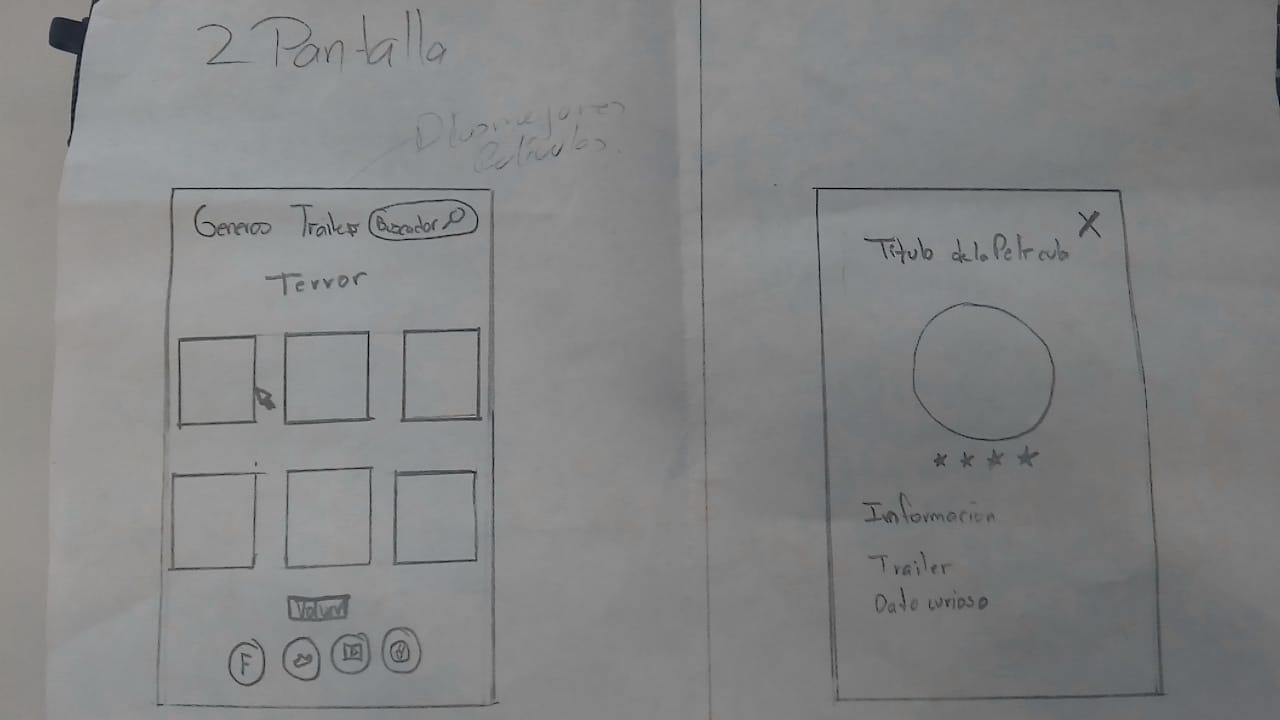 2 Pantalla
Generos Trailer Buscador
Terror
Volver
F
X
Titulo de la Pelicula
Informacion
Trailer
Dato curioso